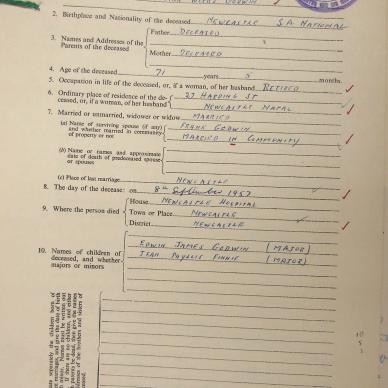 2. Birthplace and Nationality of the deceased NEWCASTLE S.A. NATIONAL
3. Names and Addresses of the Parents of the deceased
Father DECEASED
Mother DECEASED
4. Age of the deceased 71 years 5 months.
5. Occupation in life of the deceased, or, if a woman, of her husband RETIRED
6. Ordinary place of residence of the deceased, or, if a woman, of her husband
37 HARDING ST
NEWCASTLE NATAL
7. Married or unmarried, widower or widow MARRIED
(a) Name of surviving spouse (if any) and whether married in community of property or not
FRANK GODWIN
MARRIED IN COMMUNITY
(b) Name or names and approximate date of death of predeceased spouse or spouses
(c) Place of last marriage NEWCASTLE
8. The day of the decease: on 8th September 1957
9. Where the person died
House NEWCASTLE HOSPITAL
Town or Place NEWCASTLE
District NEWCASTLE
10. Names of children of deceased, and whether majors or minors
EDWIN JAMES GODWIN (MAJOR)
JEAN PHYLLIS FINNIE (MAJOR)